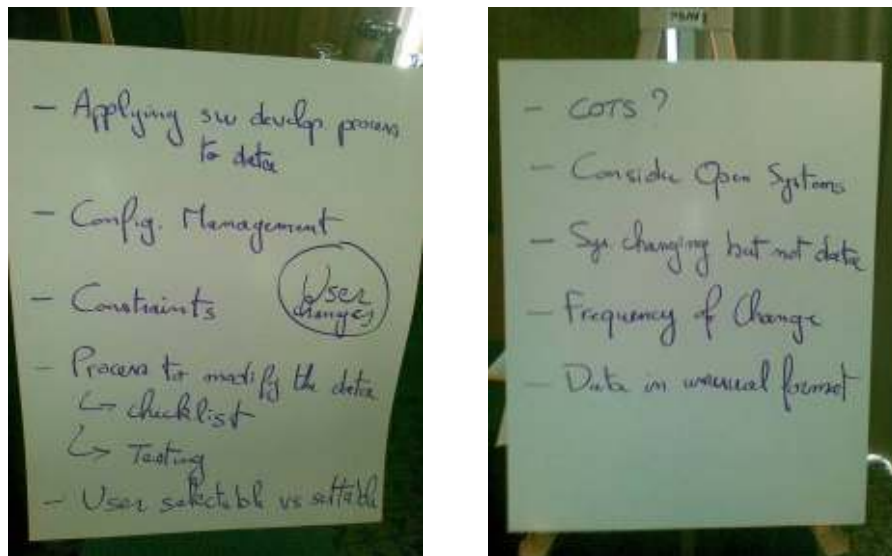 - Applying sw develop. process
to data
- Config. Management
- Constraints
User
changes
- Process to modify the data
↳ checklist
↳ Testing
- User selectable vs settable
- COTS?
- Consider Open Systems
- Sys. changing but not data
- Frequency of Change
- Data in unusual format